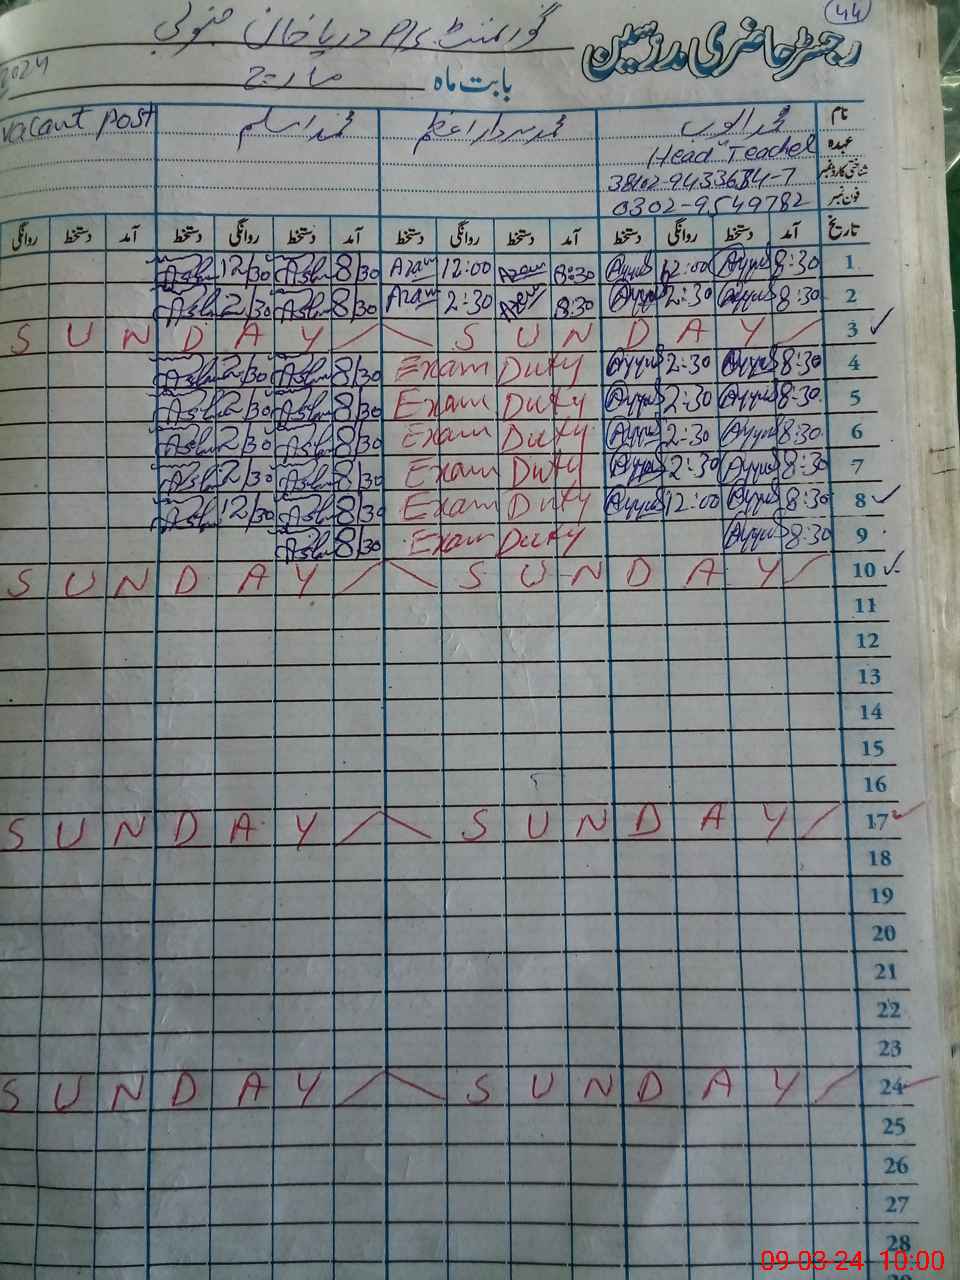 44
رجسٹر حاضری مدرسین
گورنمنٹ P/S دریا خان جنوبی
بابت ماہ مارچ 2024
نام محمد ایوب محمد سردار اعظم محمد اسلم vacant post
عہدہ Head Teacher
شناختی کارڈ نمبر 38102-9433684-7
فون نمبر 0302-9549782
تاریخ آمد دستخط روانگی دستخط آمد دستخط روانگی دستخط آمد دستخط روانگی دستخط آمد دستخط روانگی
1 8:30 Ayyub 12:00 Ayyub 8:30 Azam 12:00 Azam 8/30 Aslam 12/30 Aslam
2 8:30 Ayyub 2:30 Ayyub 8:30 Azam 2:30 Azam 8/30 Aslam 2/30 Aslam
S U N D A Y S U N D A Y 3
4 8:30 Ayyub 2:30 Ayyub Exam Duty 8/30 Aslam 2/30 Aslam
5 8:30 Ayyub 2:30 Ayyub Exam Duty 8/30 Aslam 2/30 Aslam
6 8:30 Ayyub 2:30 Ayyub Exam Duty 8/30 Aslam 2/30 Aslam
7 8:30 Ayyub 2:30 Ayyub Exam Duty 8/30 Aslam 2/30 Aslam
8 8:30 Ayyub 12:00 Ayyub Exam Duty 8/30 Aslam 12/30 Aslam
9 8:30 Ayyub Exam Duty 8/30 Aslam
S U N D A Y S U N D A Y 10
11
12
13
14
15
16
S U N D A Y S U N D A Y 17
18
19
20
21
22
23
S U N D A Y S U N D A Y 24
25
26
27
28
09-03-24 10:00